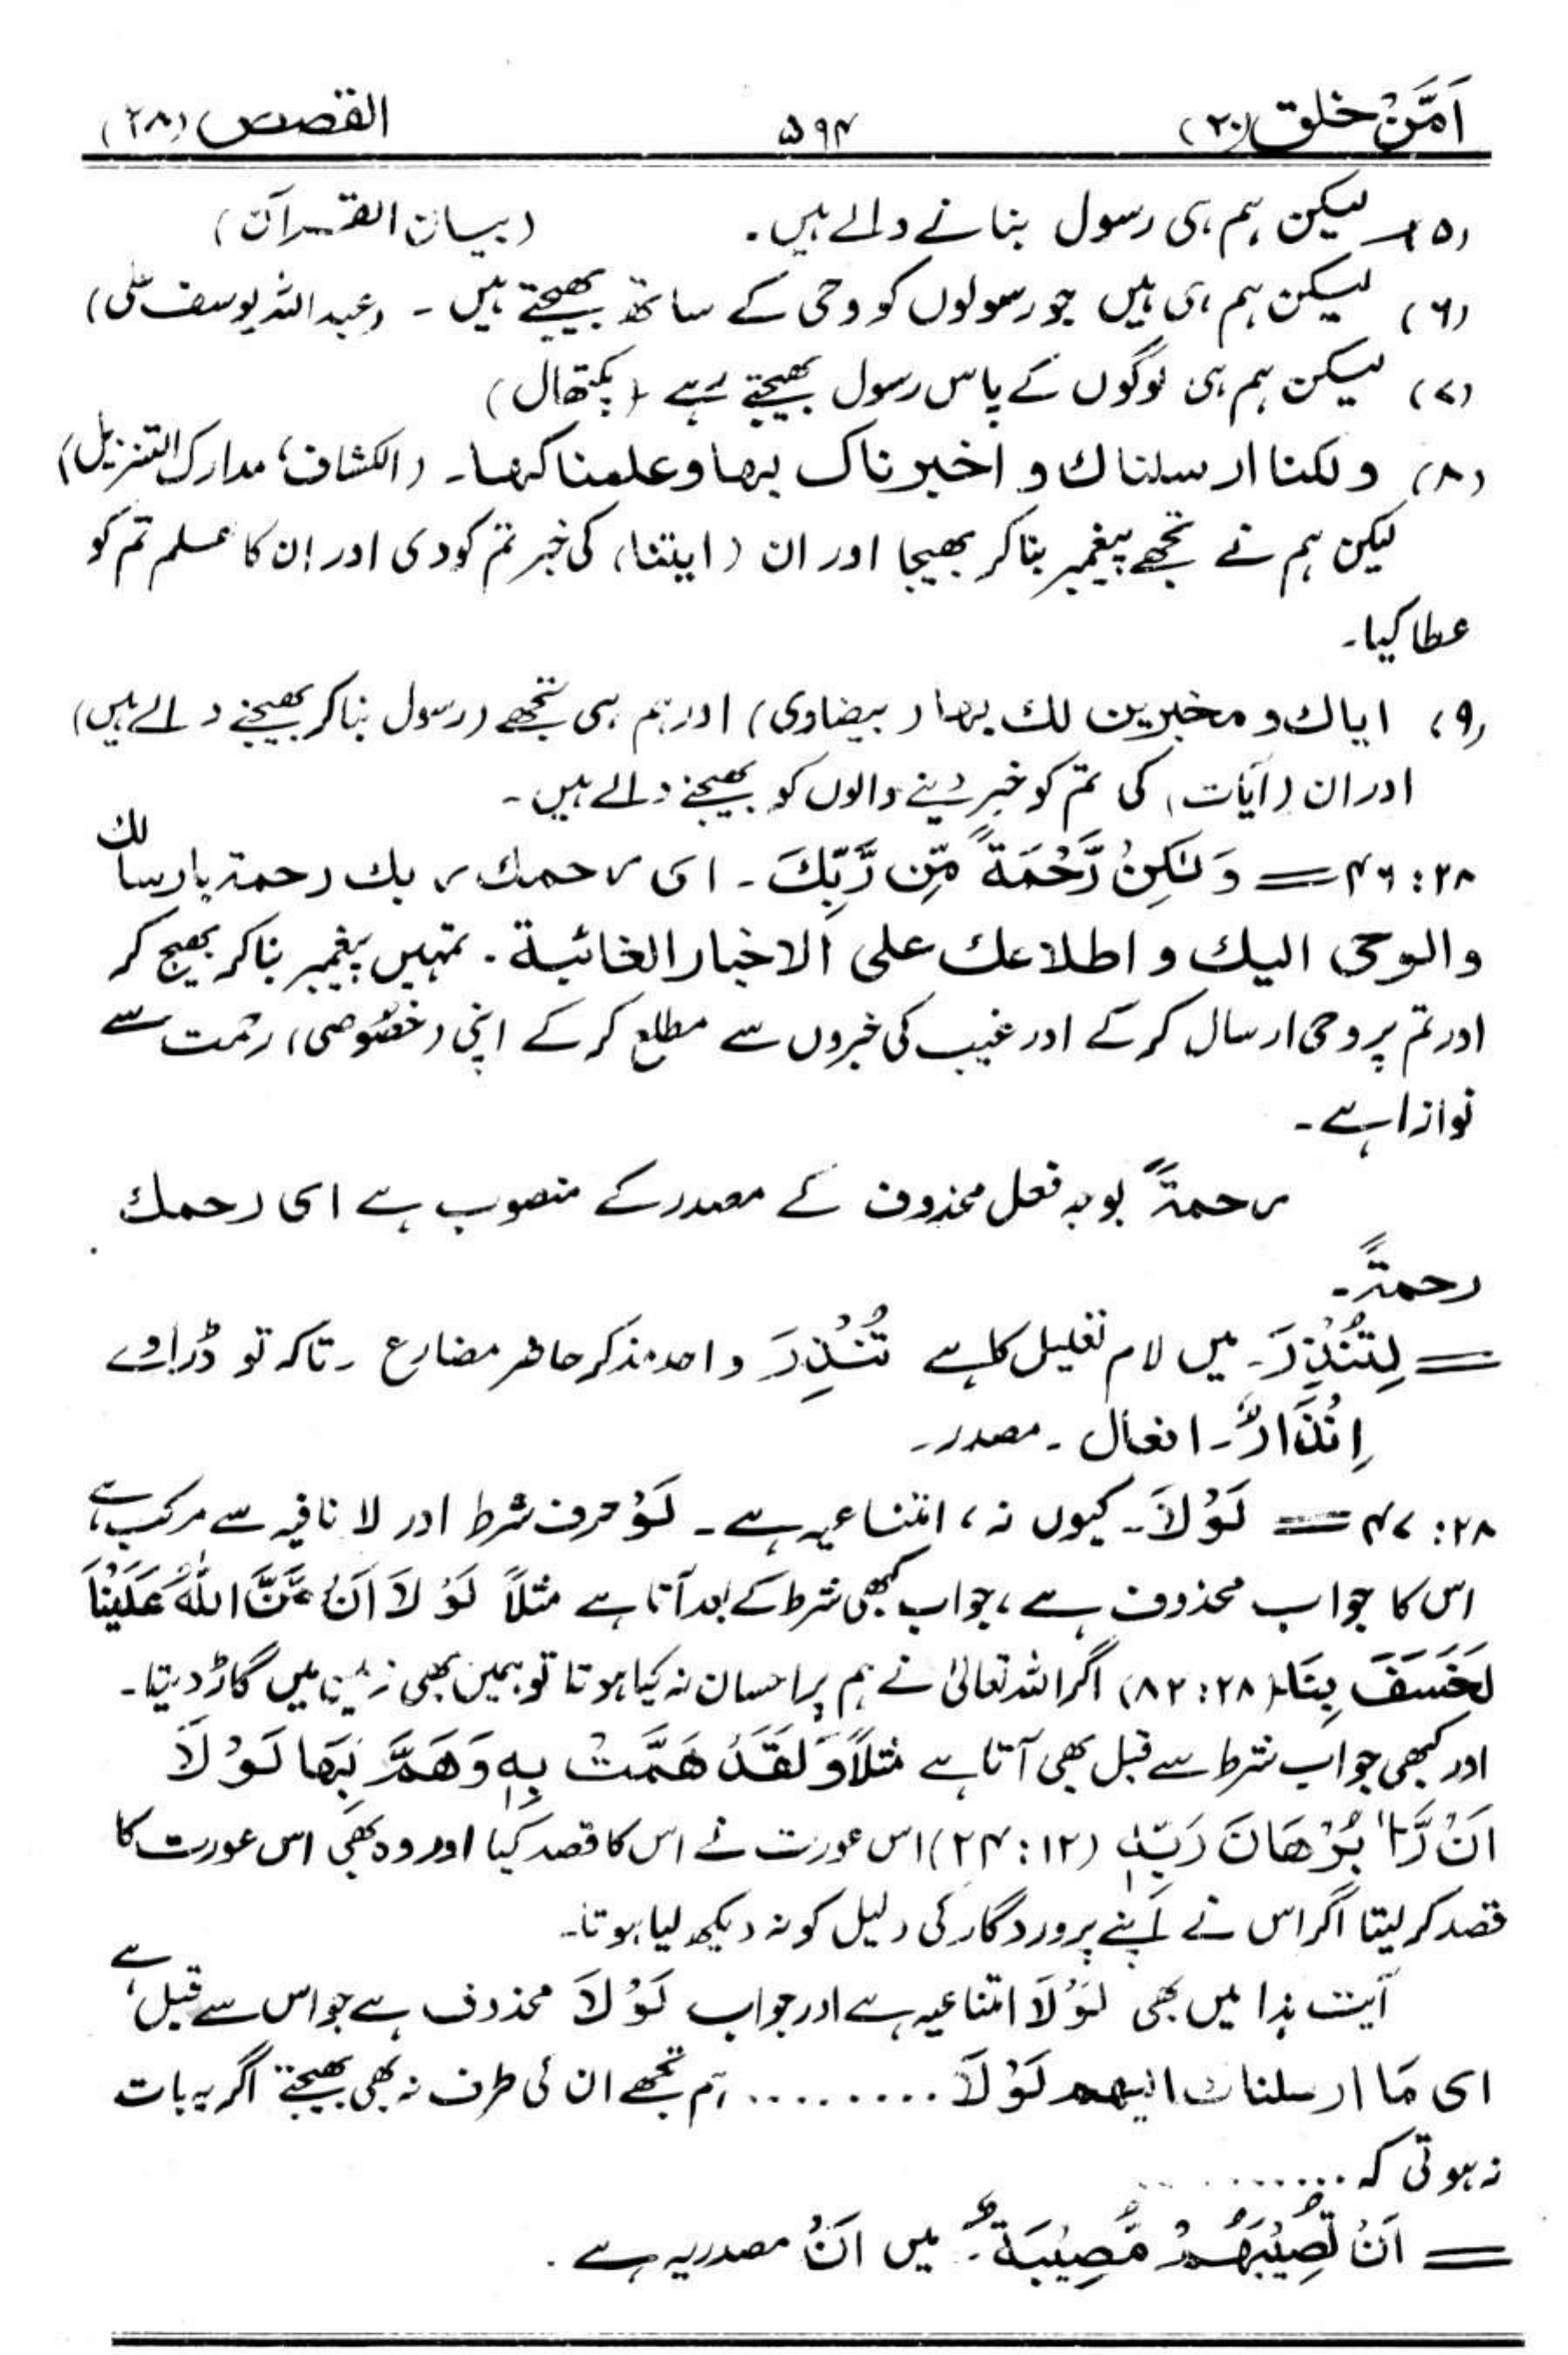 اَمَّنْ خلق (۲۰) ۵۹۴ القصص (۲۸)
(۵) لیکن ہم ہی رسول بنانے والے ہیں۔ (بیان القرآن)
(۶) لیکن ہم ہی ہیں جو رسولوں کو وحی کے ساتھ بھیجتے ہیں ۔ (عبداللہ یوسف علی)
(۷) لیکن ہم ہی لوگوں کے پاس رسول بھیجتے رہے (پکتھال)
(۸) ولکنا ارسلناك و اخبرناك بها و علمناكها۔ (الکشاف، مدارک التنزیل)
لیکن ہم نے تجھے پیغمبر بنا کر بھیجا اور ان (ایٰتنا) کی خبر تم کو دی اور ان کا علم تم کو
عطا کیا۔
(۹) ایاك و مخبرین لك بها (بیضاوی) اور ہم ہی تجھے (رسول بنا کر بھیجنے والے ہیں)
اور ان (آیات) کی تم کو خبر دینے والوں کو بھیجنے والے ہیں ۔
۲۸: ۴۶ = وَلٰكِنْ رَّحْمَةً مِّنْ رَّبِّكَ ۔ ای رحمك ربك رحمة بارسالك
والوحی الیك و اطلاعك علی الاخبار الغائبة ۔ تمہیں پیغمبر بنا کر بھیج کر
اور تم پر وحی ارسال کر کے اور غیب کی خبروں سے مطلع کر کے اپنی (خصوصی) رحمت سے
نوازا ہے ۔
رحمةً بوجہ فعل محذوف کے مصدر کے منصوب ہے ای رحمك
رحمةً ۔
= لِتُنْذِرَ۔ میں لام تعلیل کا ہے تُنْذِرَ واحد مذکر حاضر مضارع ۔ تاکہ تو ڈراوے
اِنْذَارٌ۔ افعال ۔ مصدر۔
۲۸: ۴۷ = لَوْلَا۔ کیوں نہ، امتناعیہ ہے ۔ لَوْ حرف شرط اور لا نافیہ سے مرکب ہے
اس کا جواب محذوف ہے، جواب کبھی شرط کے بعد آتا ہے مثلاً لَوْ لَا اَنْ مَّنَّ اللّٰهُ عَلَيْنَا
لَخَسَفَ بِنَا (۲۸: ۸۲) اگر اللہ تعالیٰ نے ہم پر احسان نہ کیا ہوتا تو ہمیں بھی زمین میں گاڑ دیتا۔
اور کبھی جواب شرط سے قبل بھی آتا ہے مثلاً وَلَقَدْ هَمَّتْ بِهٖ وَهَمَّ بِهَا لَوْ لَا
اَنْ رَّاٰ بُرْهَانَ رَبِّهٖ (۱۲: ۲۴) اس عورت نے اس کا قصد کیا اور وہ بھی اس عورت کا
قصد کر لیتا اگر اس نے اپنے پروردگار کی دلیل کو نہ دیکھ لیا ہوتا۔
آیت ہذا میں بھی لَوْلَا امتناعیہ ہے اور جواب لَوْلَا محذوف ہے جو اس سے قبل ہے
ای مَا ارسلناك الیهم لَوْلَا ......... ہم تجھے ان کی طرف نہ بھی بھیجتے اگر یہ بات
نہ ہوتی کہ .........
= اَنْ تُصِيْبَهُمْ مُّصِيْبَةٌ ۔ میں اَنْ مصدریہ ہے ۔